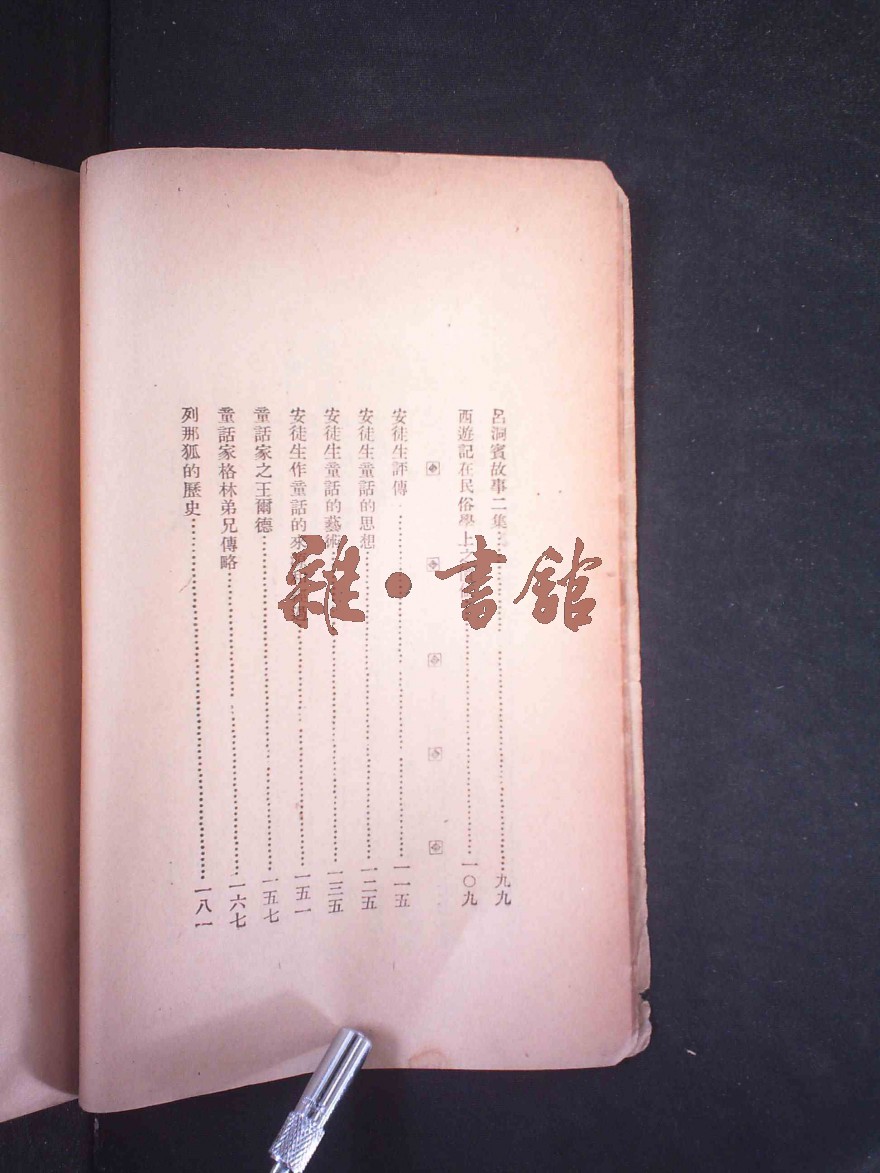 呂洞賓故事二集……九九
西遊記在民俗學上之……一〇九
安徒生評傳……一一五
安徒生童話的思想……一二五
安徒生童話的藝術……一三五
安徒生作童話的來……一五一
童話家之王爾德……一五七
童話家格林弟兄傳略……一六七
列那狐的歷史……一八一
雜·書館